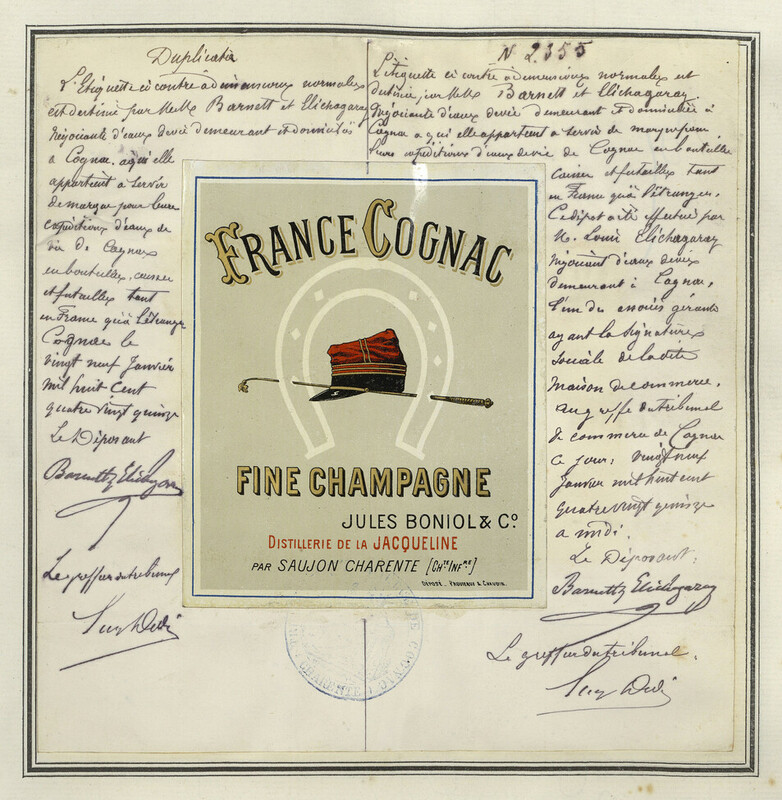 Duplicata
L'Etiquette ci contre à dimensions normales
est destinée par MM. Barnett et Elichagaray
Négociants d'eaux de vie demeurant et domiciliés
à Cognac, à qui elle
appartient à servir
de marque pour leurs
expéditions d'eaux de
vie de Cognac
en bouteilles, caisses
et futailles tant
en France qu'à l'étranger
Cognac le
vingt neuf Janvier
mil huit cent
quatre vingt quinze
Le Déposant
Barnett & Elichagaray
Le greffier du tribunal
N 2355
L'étiquette ci contre à dimensions normales et
destinée par MM. Barnett et Elichagaray
Négociants d'eaux de vie demeurant et domiciliés à
Cognac à qui elle appartient à servir de marque pour
leurs expéditions d'eaux de vie de Cognac en bouteilles
caisses et futailles tant
en France qu'à l'étranger.
Ce dépot a été effectué par
M. Louis Elichagaray
Négociant d'eaux de vie
demeurant à Cognac,
l'un des associés gérants
ayant la signature
sociale de ladite
maison de commerce,
au greffe du tribunal
de commerce de Cognac
ce jour, vingt neuf
Janvier mil huit cent
quatre vingt quinze
a midi.
Le Déposant:
Barnett & Elichagaray
Le greffier du tribunal.
FRANCE COGNAC
FINE CHAMPAGNE
JULES BONIOL & Cº
DISTILLERIE DE LA JACQUELINE
PAR SAUJON CHARENTE [CHTE INFRE]
DÉPOSÉ.
CHARENTE